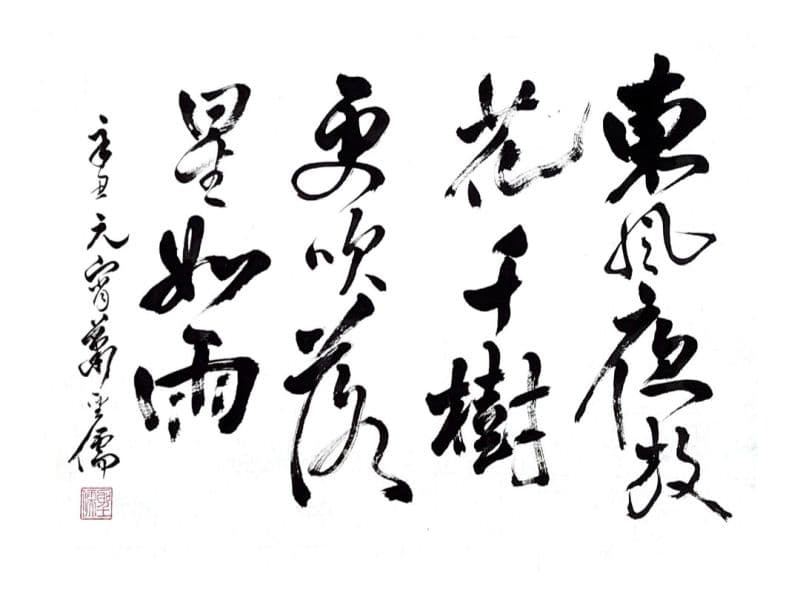 東風夜放
花千樹
更吹落
星如雨
辛丑元宵儒